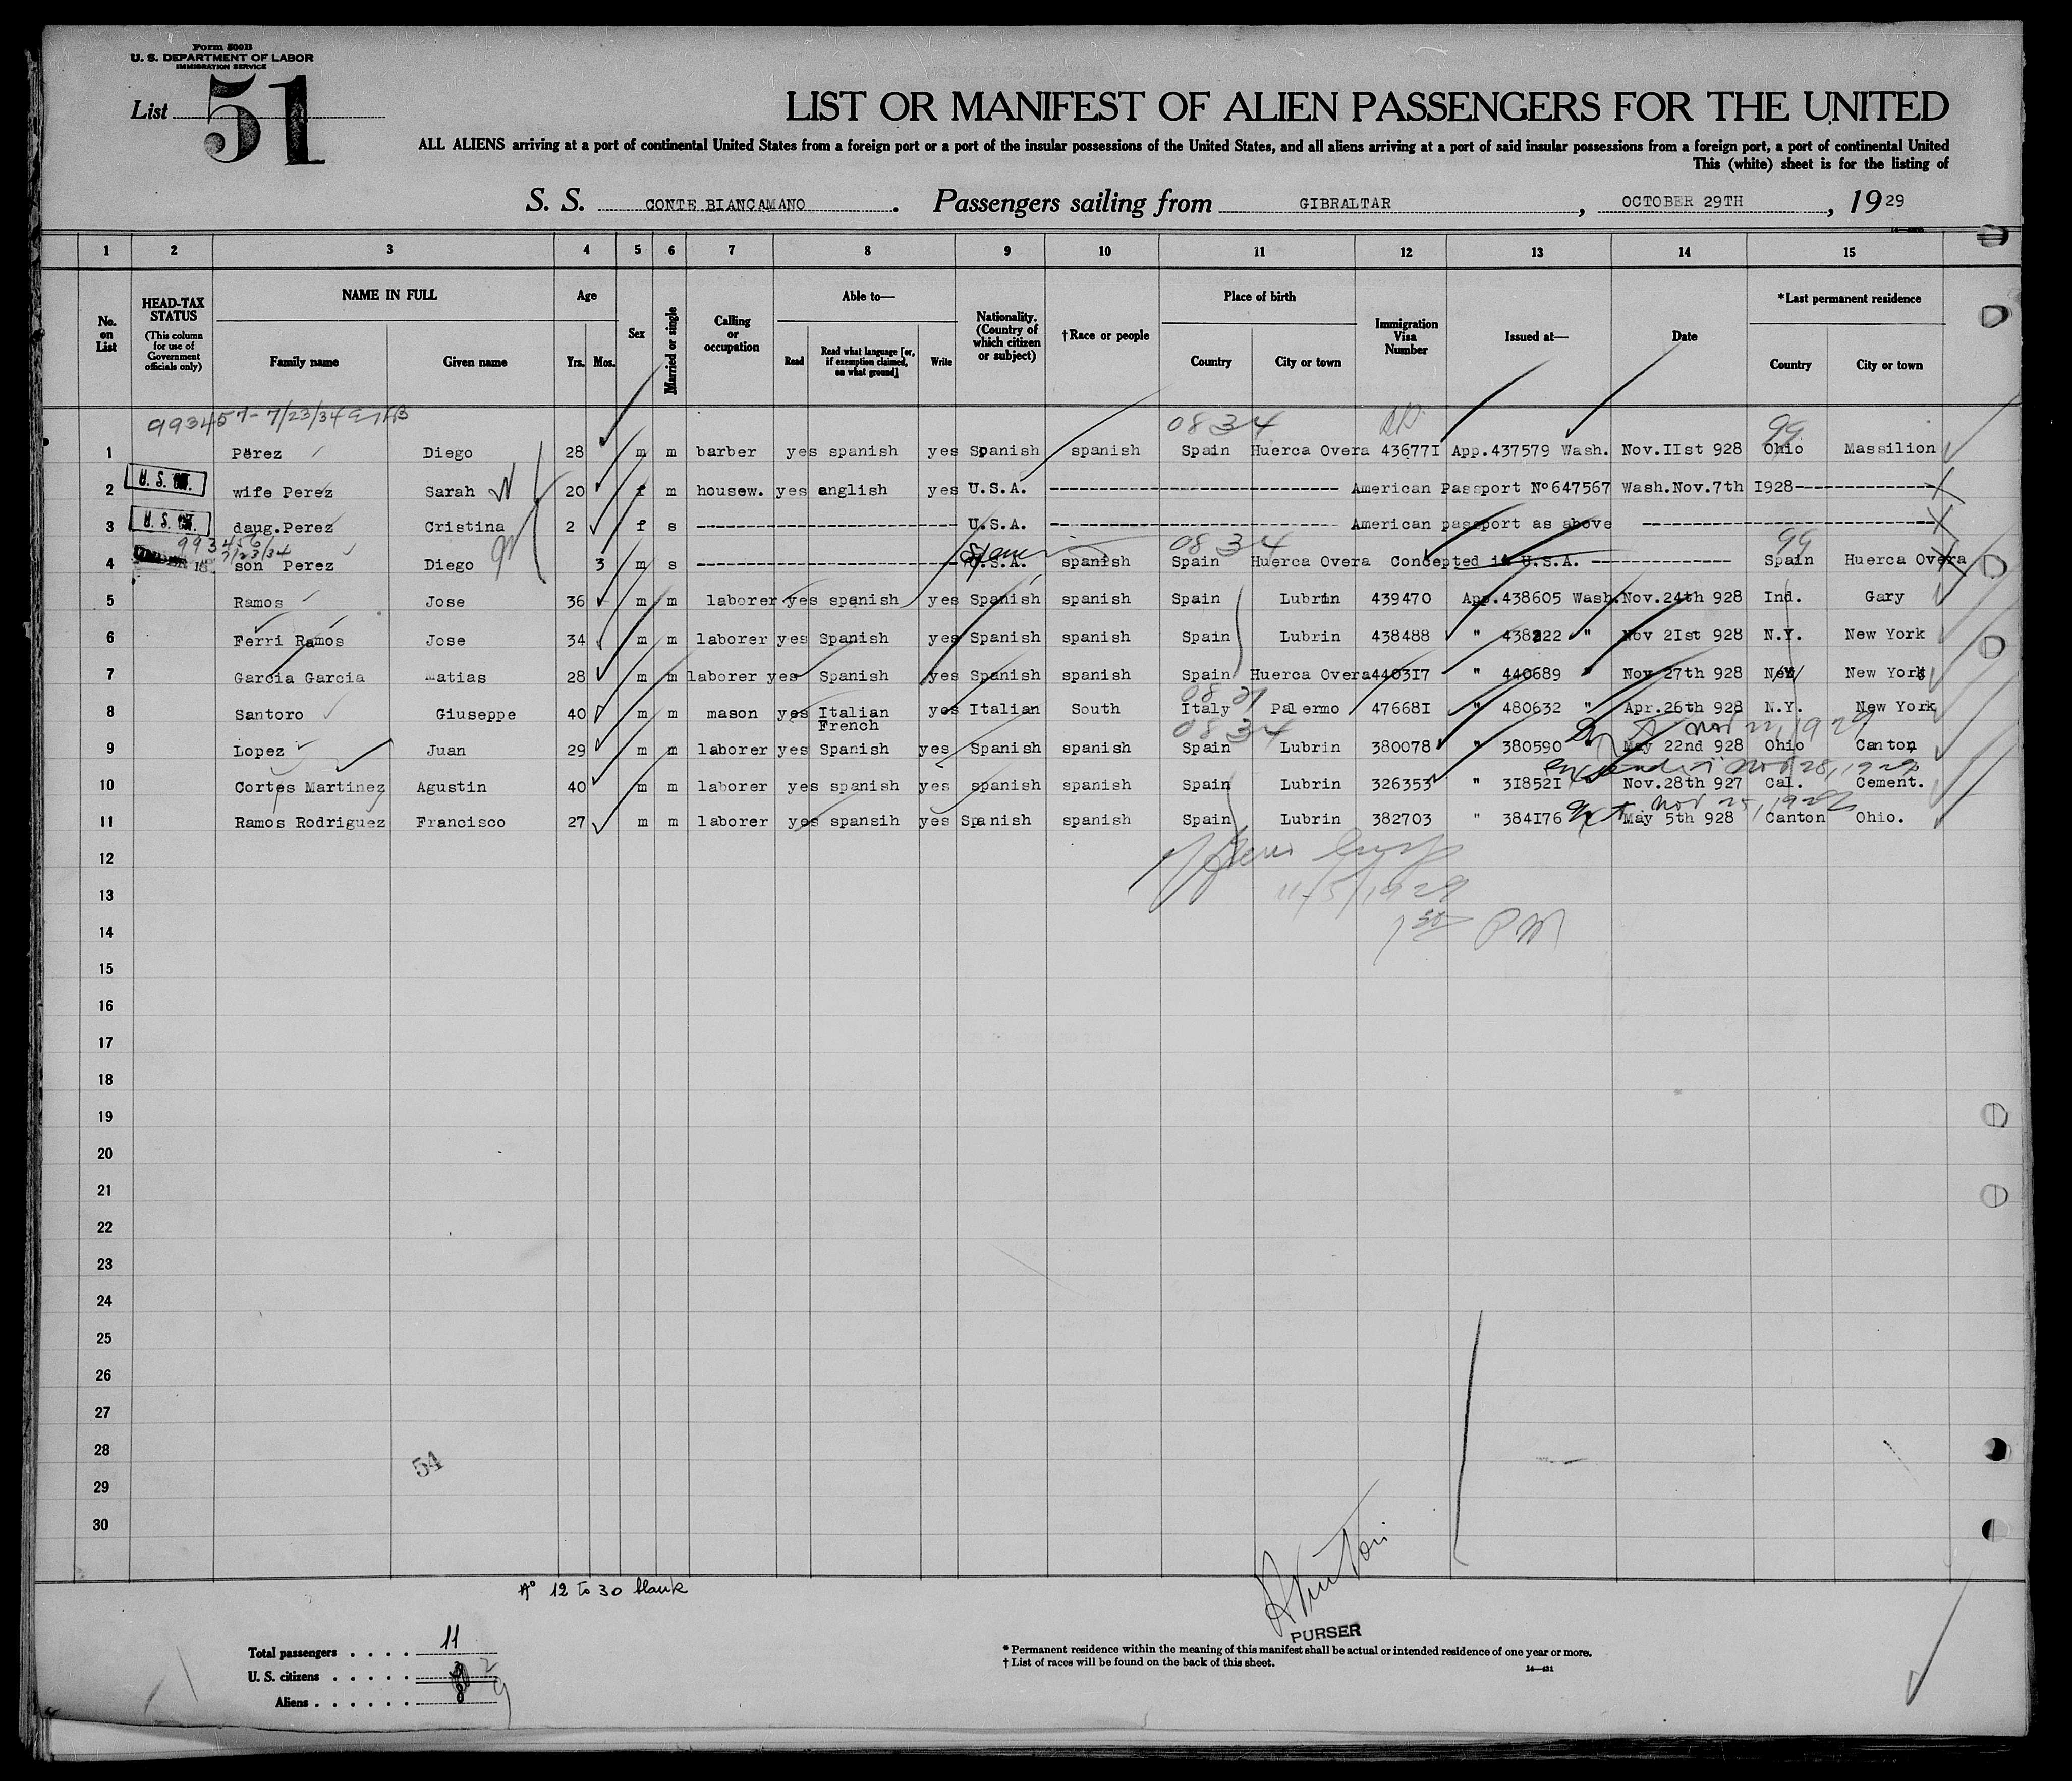 Form 500B
U. S. DEPARTMENT OF LABOR
IMMIGRATION SERVICE
List 51
LIST OR MANIFEST OF ALIEN PASSENGERS FOR THE UNITED
ALL ALIENS arriving at a port of continental United States from a foreign port or a port of the insular possessions of the United States, and all aliens arriving at a port of said insular possessions from a foreign port, a port of continental United
This (white) sheet is for the listing of
S. S. CONTE BIANCAMANO. Passengers sailing from GIBRALTAR, OCTOBER 29TH, 1929
1 2 3 4 5 6 7 8 9 10 11 12 13 14 15
No. on List
HEAD-TAX STATUS (This column for use of Government officials only)
NAME IN FULL
Family name Given name
Age
Yrs. Mos.
Sex
Married or single
Calling or occupation
Able to—
Read Read what language [or, if exemption claimed, on what ground] Write
Nationality. (Country of which citizen or subject)
†Race or people
Place of birth
Country City or town
Immigration Visa Number
Issued at—
Date
*Last permanent residence
Country City or town
993457- 7/23/34 0834 99
1 Pérez Diego 28 m m barber yes spanish yes Spanish spanish Spain Huerca Overa 436771 App.437579 Wash. Nov.IIst 928 Ohio Massilion
2 U. S. wife Perez Sarah 20 f m housew. yes english yes U.S.A. American Passport Nº647567 Wash.Nov.7th 1928
3 U. S. daug.Perez Cristina 2 f s U.S.A. American passport as above
993456 7/23/34 0834 99
4 UNDER 18 son Perez Diego 3 m s U.S.A. spanish Spain Huerca Overa Concepted in U.S.A. Spain Huerca Overa
5 Ramos Jose 36 m m laborer yes spanish yes Spanish spanish Spain Lubrin 439470 App.438605 Wash. Nov.24th 928 Ind. Gary
6 Ferri Ramos Jose 34 m m laborer yes Spanish yes Spanish spanish Spain Lubrin 438488 " 438222 " Nov 2Ist 928 N.Y. New York
7 Garcia Garcia Matias 28 m m laborer yes Spanish yes Spanish spanish Spain Huerca Overa 4403I7 " 440689 " Nov 27th 928 New York
8 Santoro Giuseppe 40 m m mason yes Italian French yes Italian South Italy Palermo 47668I " 480632 " Apr.26th 928 N.Y. New York
0834 Nov 1929
9 Lopez Juan 29 m m laborer yes Spanish yes Spanish spanish Spain Lubrin 380078 " 380590 May 22nd 928 Ohio Canton
extended Nov 28, 1929
10 Cortes Martinez Agustin 40 m m laborer yes spanish yes spanish spanish Spain Lubrin 326353 " 3I852I Nov.28th 927 Cal. Cement.
Nov 25, 1929
11 Ramos Rodriguez Francisco 27 m m laborer yes spansih yes Spanish spanish Spain Lubrin 382703 " 384I76 May 5th 928 Canton Ohio.
12
11/5/1929
13
1 50 PM
14
15
16
17
18
19
20
21
22
23
24
25
26
27
28
54
29
30
Nº 12 to 30 blank
PURSER
Total passengers . . . . 11
U. S. citizens . . . . . 2
Aliens . . . . . . 9
* Permanent residence within the meaning of this manifest shall be actual or intended residence of one year or more.
† List of races will be found on the back of this sheet.